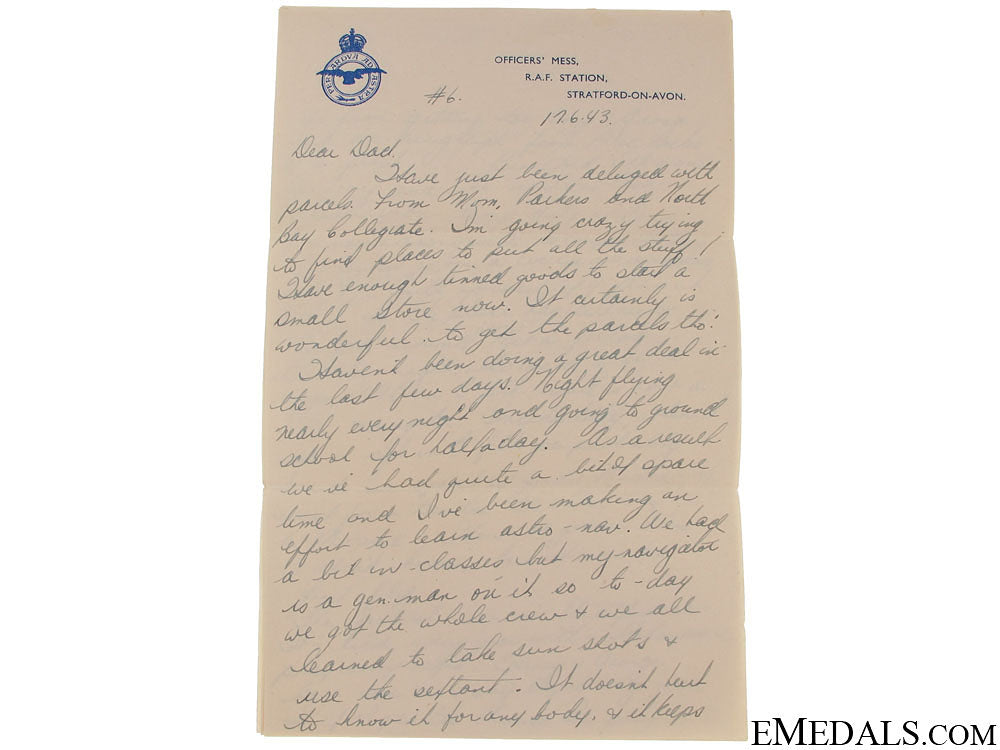 PER ARDVA AD ASTRA
OFFICERS' MESS,
R.A.F. STATION,
STRATFORD-ON-AVON.
#6.
17.6.43.
Dear Dad.
Have just been deluged with
parcels. From Mom, Parkers and North
Bay Collegiate. I'm going crazy trying
to find places to put all the stuff!
Have enough tinned goods to start a
small store now. It certainly is
wonderful to get the parcels tho'.
Haven't been doing a great deal in
the last few days. Night flying
nearly every night and going to ground
school for half a day. As a result
we've had quite a bit of spare
time and I've been making an
effort to learn astro-nav. We had
a bit in classes but my navigator
is a gen. man on it so to-day
we got the whole crew & we all
learned to take sun shots &
use the sextant. It doesn't hurt
to know it for any body. & it keeps
EMEDALS.COM